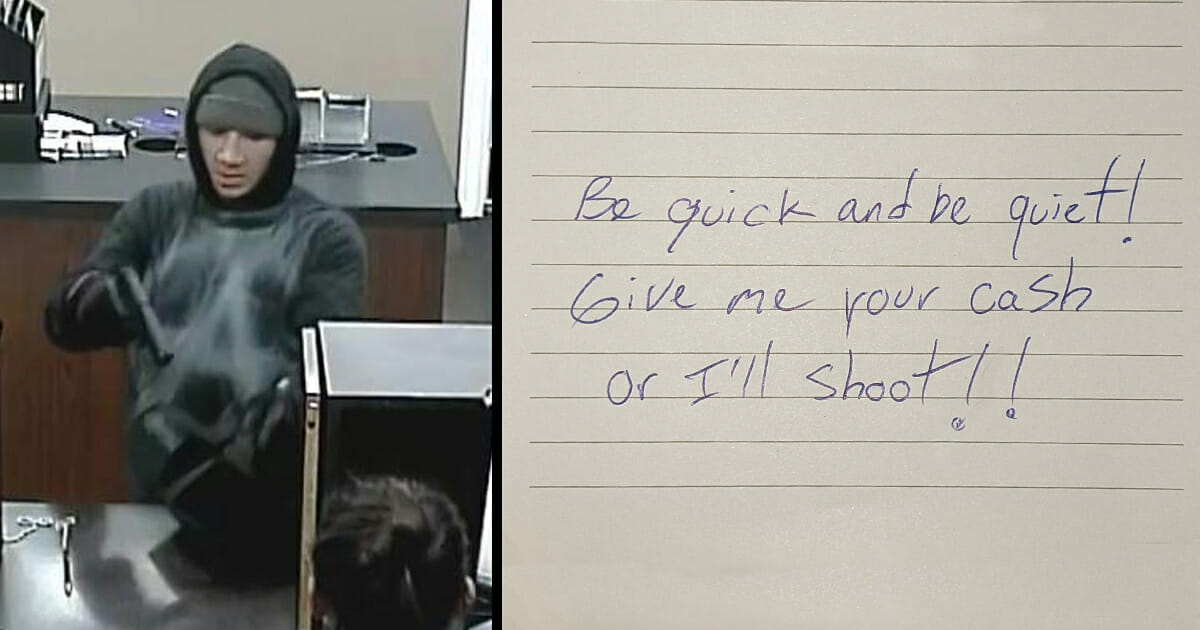 Be quick and be quiet!
Give me your cash
or I'll shoot!!